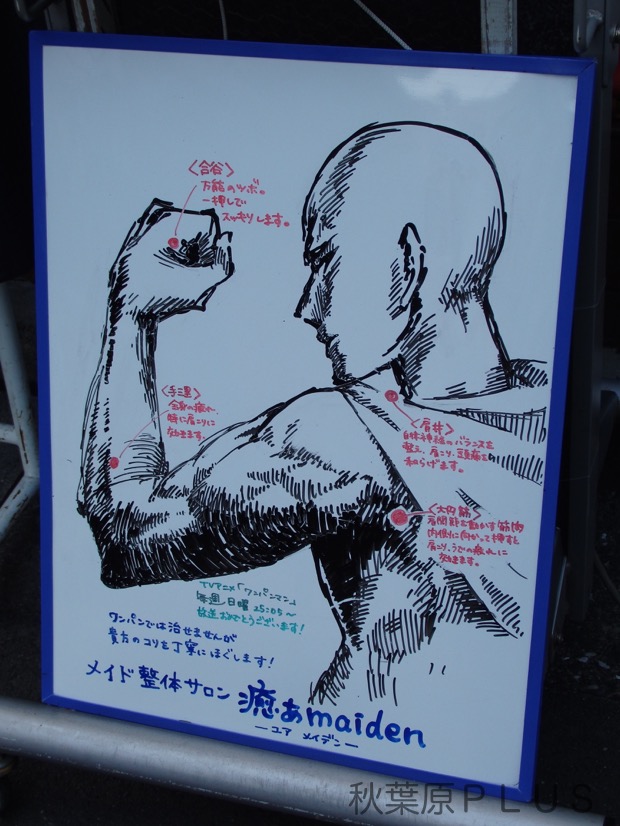 〈合谷〉
万能のツボ。
一押しで
スッキリします。
〈手三里〉
全身の疲れ、
特に肩こりに
効きます。
〈肩井〉
自律神経のバランスを
整え、肩こり、頭痛を
和らげます。
〈大円筋〉
肩関節を動かす筋肉
内側に向かって押すと
肩こり、うでの疲れに
効きます。
TVアニメ「ワンパンマン」
毎週日曜25:05〜
放送おめでとうございます!
ワンパンでは治せませんが
貴方のコリを丁寧にほぐします!
メイド整体サロン 癒あmaiden
—ユア メイデン—
秋葉原PLUS